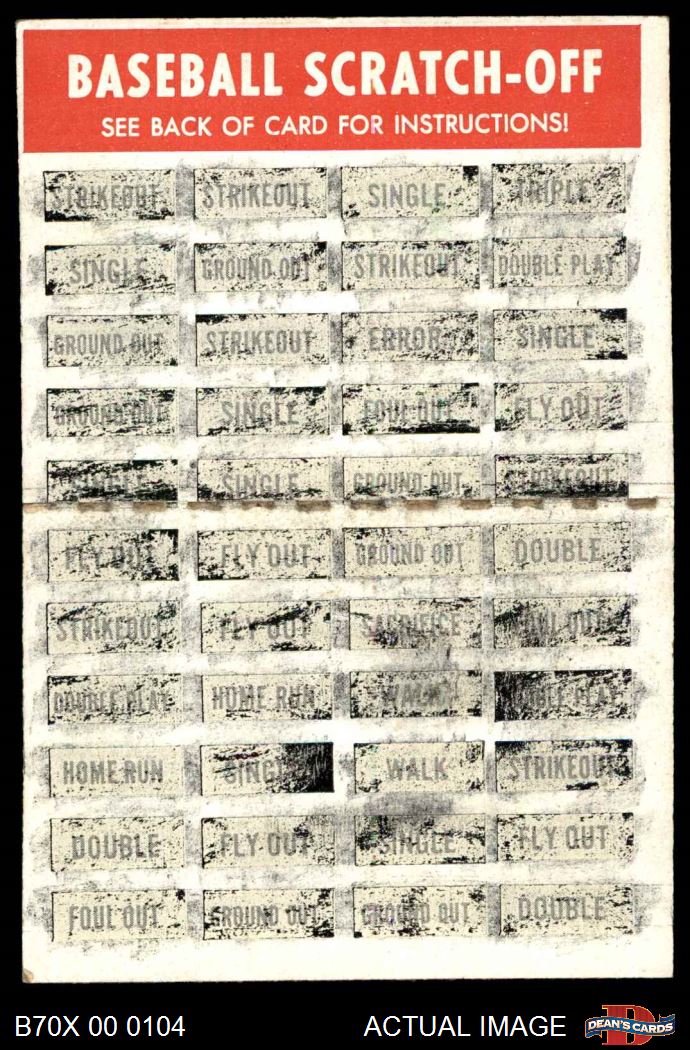 BASEBALL SCRATCH-OFF
SEE BACK OF CARD FOR INSTRUCTIONS!
STRIKEOUT STRIKEOUT SINGLE TRIPLE
SINGLE GROUND OUT STRIKEOUT DOUBLE PLAY
GROUND OUT STRIKEOUT ERROR SINGLE
GROUND OUT SINGLE FOUL OUT FLY OUT
SINGLE SINGLE GROUND OUT STRIKEOUT
FLY OUT FLY OUT GROUND OUT DOUBLE
STRIKEOUT FLY OUT SACRIFICE FOUL OUT
DOUBLE PLAY HOME RUN WALK DOUBLE PLAY
HOME RUN SINGLE WALK STRIKEOUT
DOUBLE FLY OUT SINGLE FLY OUT
FOUL OUT GROUND OUT GROUND OUT DOUBLE
B70X 00 0104 ACTUAL IMAGE DEAN'S CARDS